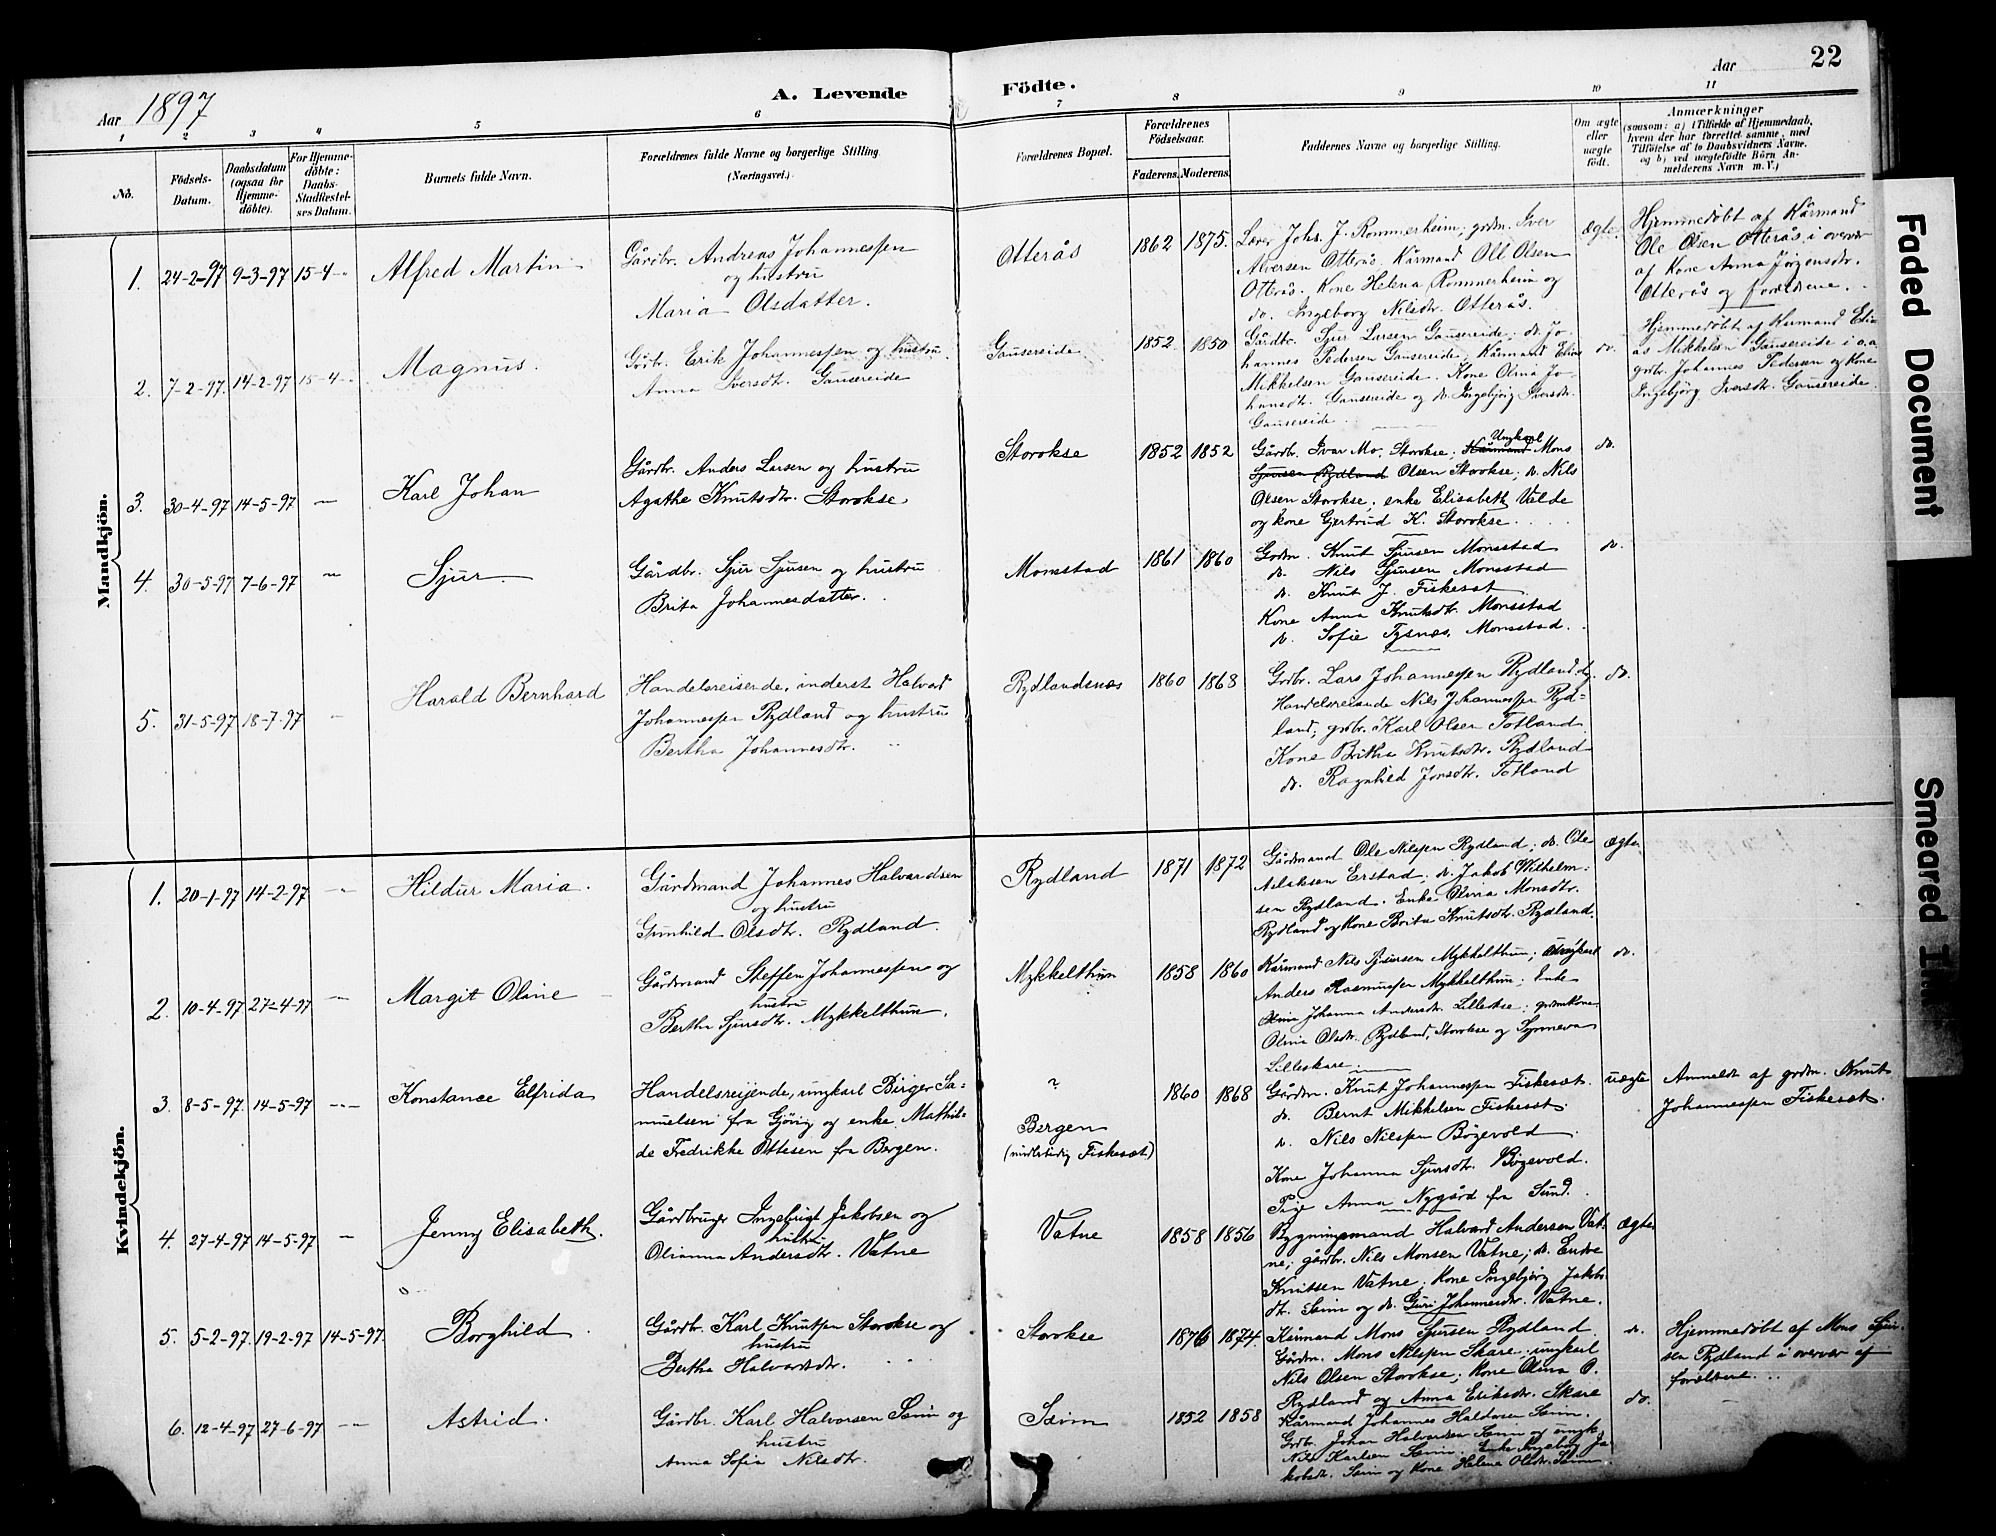 Aar 1897
A. Levende Födte.
Aar 22
1 2 3 4 5 6 7 8 9 10 11
No.
Födsels-Datum.
Daabsdatum (ogsaa for Hjemme-döbte).
For Hjemme-döbte: Daabs-Stadfæstel-ses Datum.
Barnets fulde Navn.
Forældrenes fulde Navne og borgerlige Stilling
(Næringsvei.)
Forældrenes Bopæl.
Forældrenes Födselsaar.
Faderens. Moderens.
Faddernes Navne og borgerlige Stilling.
Om ægte eller uægte födt.
Anmærkninger
(saasom: a) i Tilfælde af Hjemmedaab,
hvem der har forrettet samme, med
Tilföielse af to Daabsvidners Navne.
og b) ved uægtefödte Börn An-
melderens Navn m. V.)
Mandkjön.
1. 24-2-97 9-3-97 15-4-" Alfred Martin
Gårdbr. Andreas Johannessen
og hustru
Maria Olsdatter.
Otterås 1862 1875.
Lærer Johs. J. Rommerheim, grdm. Iver
Alversen Otterås. Kårmand Ole Olsen
Otterås. Kone Helena Rommerheim og
do. Ingeborg Nilsdtr. Otterås.
ægte.
Hjemmedøbt af Kårmand
Ole Olsen Otterås i overvær
af Kone Anna Jørgensdtr.
Otterås og forældrene.
2. 7-2-97. 14-2-97 15-4-" Magnus.
Gårbr. Erik Johannessen og hustru
Anna Iversdtr. Gausereide
Gausereide 1852 1850
Gårdbr. Sjur Larsen Gausereide; do. Jo-
hannes Pedersen Gausereide, Kårmand Elias
Mikkelsen Gausereide. Kone Olina Jo-
hansdtr. Gausereide og do. Ingebjörg Iversdtr.
Gausereide
do.
Hjemmedøbt af Kårmand Eli-
as Mikkelsen Gausereide i o.a
grdbr. Johannes Pedersen og Kone
Ingebjörg Iversdtr. Gausereide.
3. 30-4-97 14-5-97 — Karl Johan
Gårdbr. Anders Larsen og hustru
Agathe Knutsdtr. Storokse.
Storokse 1852 1852
Gårdbr. Ivar Mo, Storokse; Kårmand Ungkarl Mons
Sjursen Rydland Olsen Storokse; do. Nils
Olsen Storokse; enke Elisabeth Valde
og kone Gjertrud K. Storokse.
do.
4. 30-5-97 7-6-97 " Sjur
Gårdbr. Sjur Sjursen og hustru
Brita Johannesdatter.
Monsstad 1861 1860
Grdm. Knut Sjursen Monsstad
do. Nils Sjursen Monsstad
do. Knut J. Fiskeset
Kone Anna Knutsdtr. Monsstad
do. Sofie Tysnes, Monsstad.
do.
5. 31-5-97 18-7-97 " Harald Bernhard
Handelsreisende, inderst Halvard
Johannessen Rydland og hustru
Bertha Johannesdtr.
Rydlandsnes 1860 1868
Grdbr. Lars Johannessen Rydland,
Handelsreisende Nils Johannessen Ryd-
land, grdbr. Karl Olsen Totland
Kone Britha Knutsdtr. Rydland
do. Ragnhild Jonsdtr. Totland
do.
Kvindekjön.
1. 20-1-97 14-2-97 " Hildur Maria.
Gårdmand Johannes Halvardsen
og hustru
Gunhild Olsdtr. Rydland.
Rydland 1871 1872
Gårdmand Ole Nilssen Rydland; do. Ole
Aslaksen Erstad; do. Jakob Wilhelm-
sen Rydland. Enke Olina Monsdtr.
Rydland og Kone Brita Knutsdtr. Rydland.
ægte
2. 10-4-97 27-4-97 " Margit Oline
Gårdmand Steffen Johannessen og
hustru
Bertha Sjursdtr. Mykkelthun.
Mykkelthun 1858 1860
Kårmand Nils Sjursen Mykkelthun; Ungkarl
Anders Rasmussen Mykkelthun; Enke
Johanna Andersdtr. Lilleokse; grdm Kone
Olina Olsdtr. Rydland, Storokse og Synneva
Lilleskare
do.
3. 8-5-97. 14-5-97 " Konstance Elfrida
Handelsreijende, ungkarl Birger Sa-
muelsen fra Gjøvig og enke Mathil-
de Fredrikke Ottesen fra Bergen.
?
Bergen
(midlertidig Fiskeset)
1860 1868
Gårdm. Knut Johannessen Fiskeset.
do. Bernt Mikkelsen Fiskeset
do. Nils Nilssen Bøgevold
Kone Johanna Sjursdtr. Bøgevold.
Pige Anna Nygård fra Sund.
uægte
Anmeldt af grdm. Knut
Johannessen Fiskeset.
4. 27-4-97 14-5-97 — Jenny Elisabeth.
Gårdbruger Ingebrigt Jakobsen og
hustru
Olianna Andersdtr. Vatne
Vatne 1858 1856
Bygningsmand Halvard Andersen Vat-
ne; gårdbr. Nils Monsen Vatne; do. Endre
Knutsen Vatne; Kone Ingebjörg Jakobs-
dtr. Seim og do. Guri Johannesdtr. Vatne.
ægte
5. 5-2-97. 19-2-97 14-5-97. Borghild
Gårdbr. Karl Knutsen Storokse og
hustru
Bertha Halvardsdtr.
Storokse 1876 1874.
Kårmand Mons Sjursen Rydland.
Gårdm. Mons Nilssen Skare; ungkarl
Nils Olsen Storokse; Kone Olina O.
Rydland og Anna Eriksdtr. Skare
do.
Hjemmedøbt af Mons Sjur-
sen Rydland i overvær af
forældrene.
6. 12-4-97 27-6-97 " Astrid.
Gårdbr. Karl Halvorsen Seim og
hustru
Anna Sofia Nilsdtr.
Seim 1852 1858
Kårmand Johannes Haldorsen Seim.
Grdbr. Johan Halvorsen Seim og ungk.
Nils Karlsen Seim. Enke Ingeborg Ja-
kobsdtr. Seim og Kone Helena Olsdtr. Seim.
do.
Faded Document
Smeared